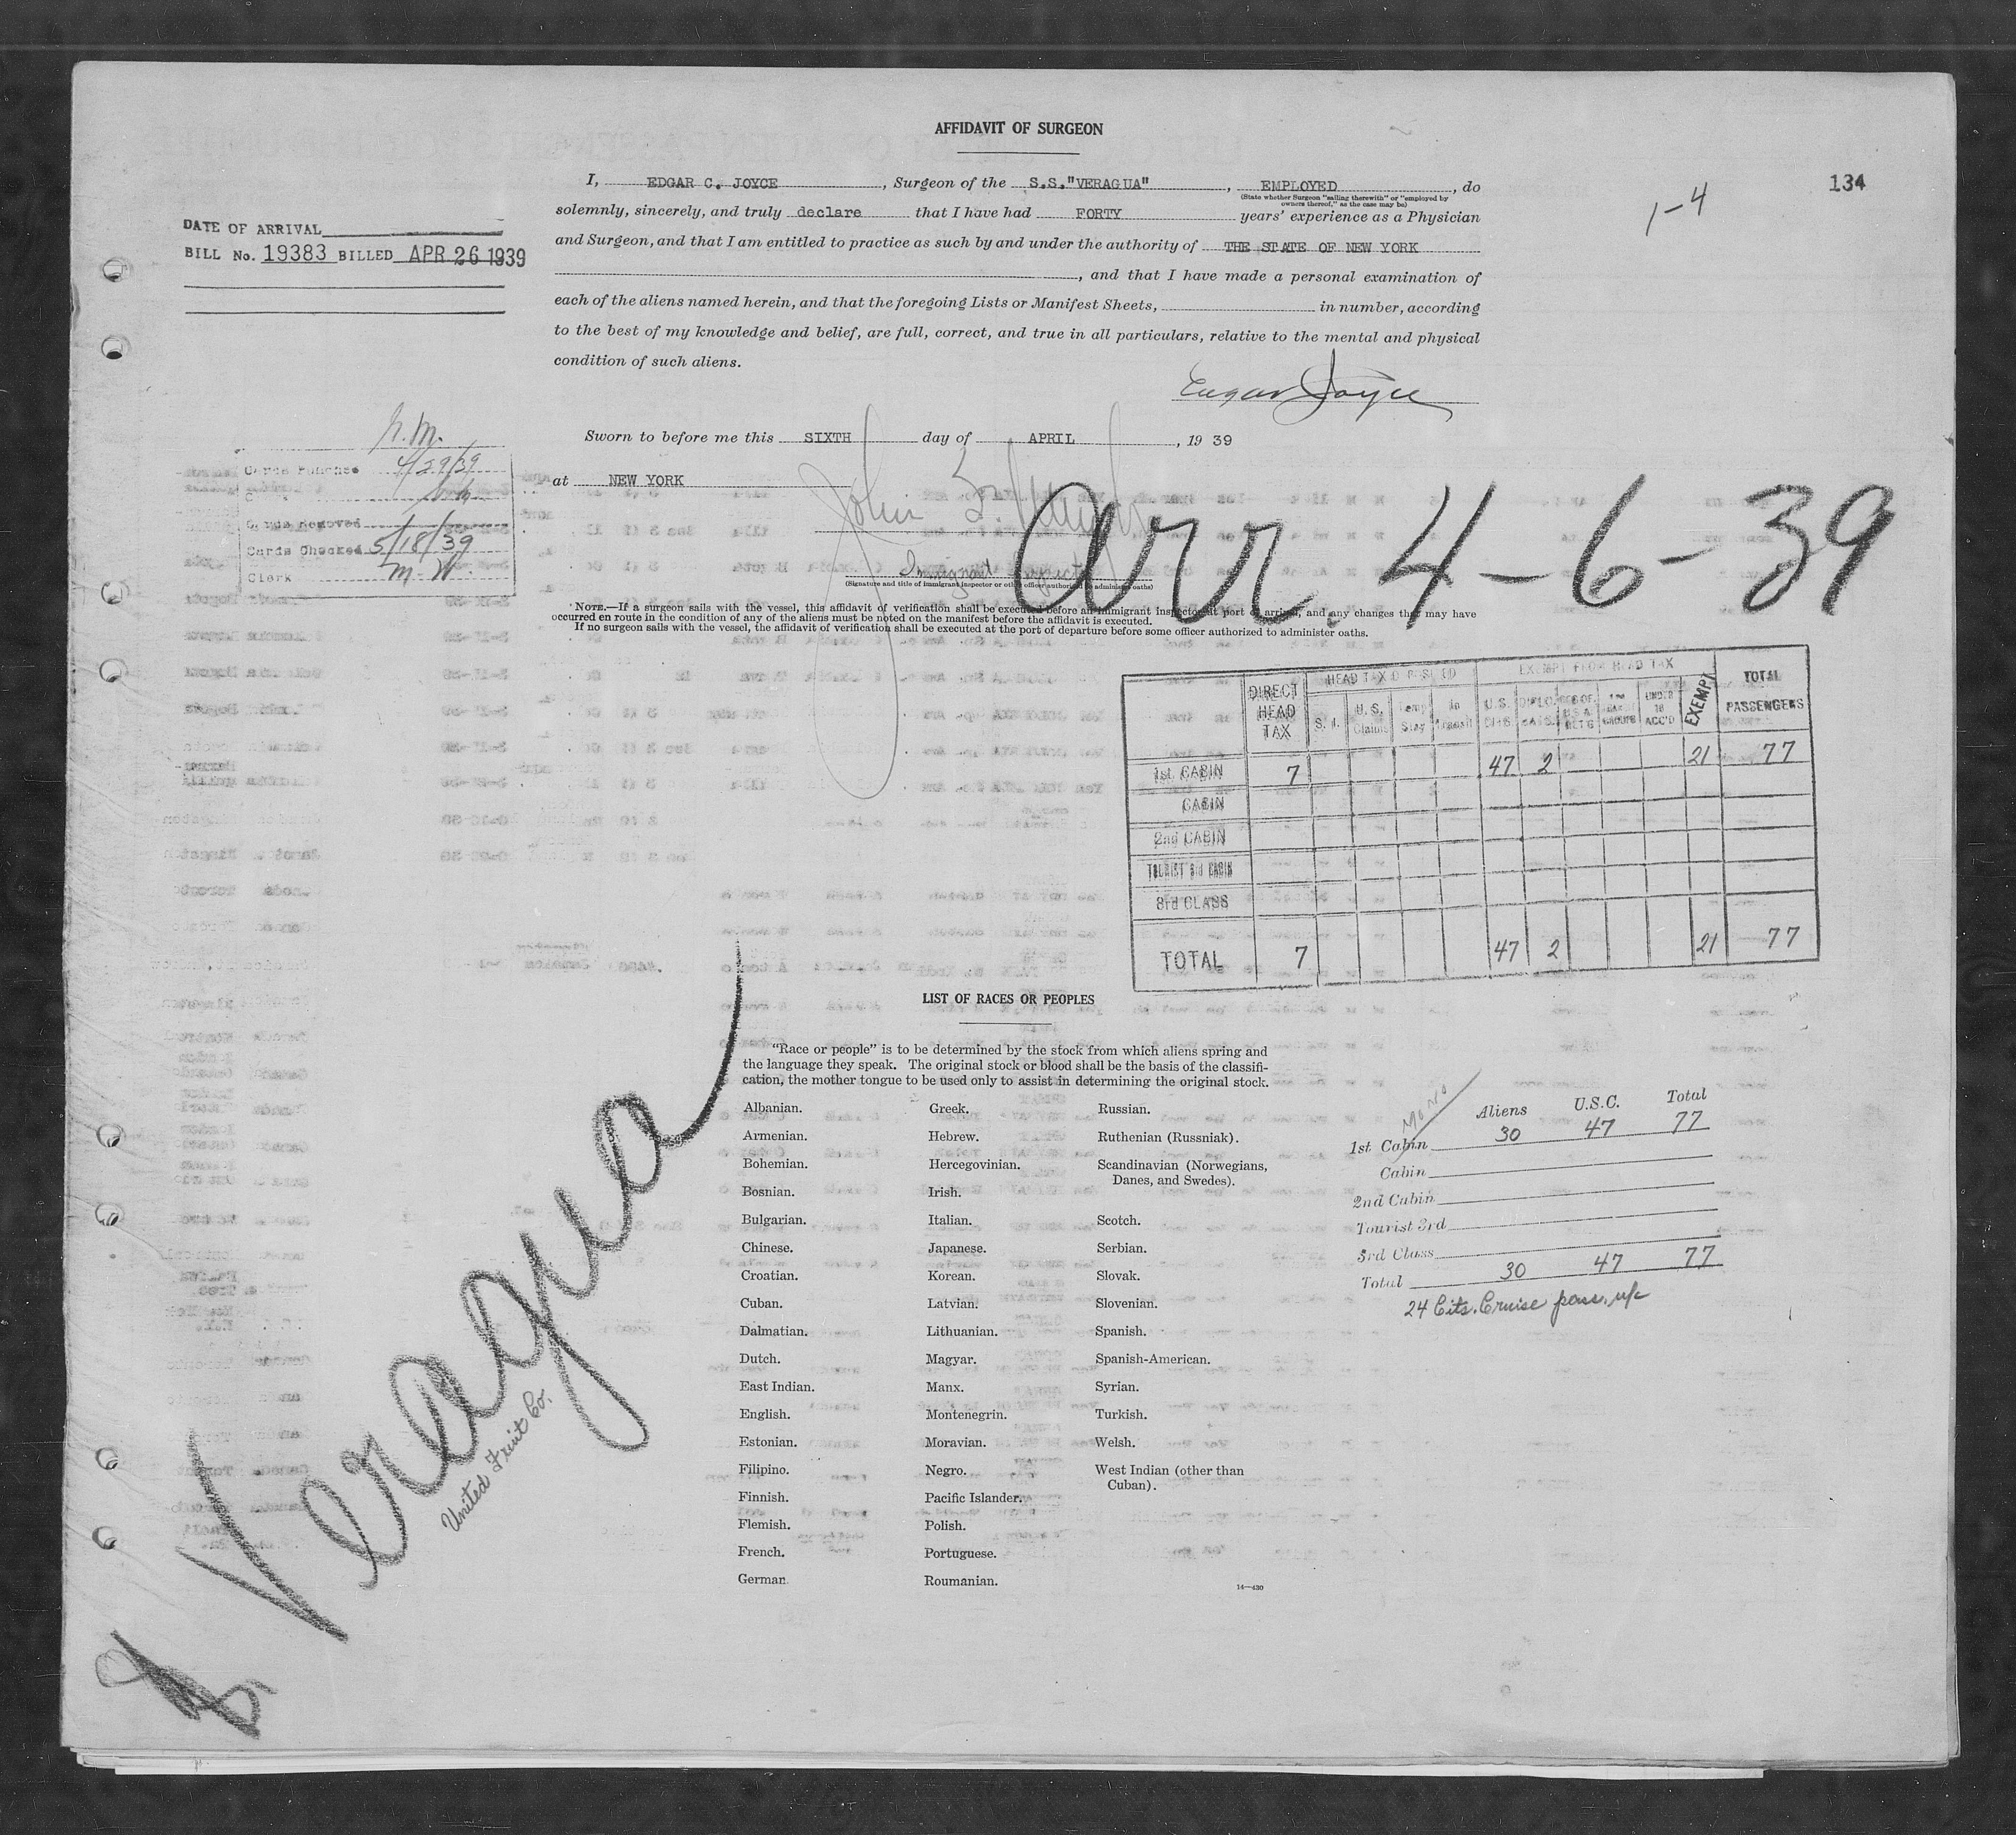 AFFIDAVIT OF SURGEON
134
1-4
I, EDGAR C. JOYCE, Surgeon of the S.S."VERAGUA", EMPLOYED, do
(State whether Surgeon "sailing therewith" or "employed by
owners thereof," as the case may be)
solemnly, sincerely, and truly declare that I have had FORTY years' experience as a Physician
and Surgeon, and that I am entitled to practice as such by and under the authority of THE STATE OF NEW YORK
, and that I have made a personal examination of
each of the aliens named herein, and that the foregoing Lists or Manifest Sheets, in number, according
to the best of my knowledge and belief, are full, correct, and true in all particulars, relative to the mental and physical
condition of such aliens.
DATE OF ARRIVAL
BILL No. 19383 BILLED APR 26 1939
Edgar Joyce
Sworn to before me this SIXTH day of APRIL, 19 39
at NEW YORK
John
Immigrant Inspector
(Signature and title of immigrant inspector or other officer authorized to administer oaths)
4/29/39
Cards Removed
Cards Checked 5/18/39
Clerk M. W.
Arr. 4-6-39
NOTE.—If a surgeon sails with the vessel, this affidavit of verification shall be executed before an immigrant inspector at port of arrival, and any changes that may have
occurred en route in the condition of any of the aliens must be noted on the manifest before the affidavit is executed.
If no surgeon sails with the vessel, the affidavit of verification shall be executed at the port of departure before some officer authorized to administer oaths.
HEAD TAX DEPOSITED EXEMPT FROM HEAD TAX
DIRECT HEAD TAX S. I. U. S. Claims Temp Stay In Transit U.S. CITS. DIPLO. MATS. UNDER 16 ACC'D EXEMPT TOTAL PASSENGERS
1st CABIN 7 47 2 21 77
CABIN
2nd CABIN
TOURIST 3rd CABIN
3rd CLASS
TOTAL 7 47 2 21 77
LIST OF RACES OR PEOPLES
"Race or people" is to be determined by the stock from which aliens spring and
the language they speak. The original stock or blood shall be the basis of the classifi-
cation, the mother tongue to be used only to assist in determining the original stock.
Albanian.
Armenian.
Bohemian.
Bosnian.
Bulgarian.
Chinese.
Croatian.
Cuban.
Dalmatian.
Dutch.
East Indian.
English.
Estonian.
Filipino.
Finnish.
Flemish.
French.
German
Greek.
Hebrew.
Hercegovinian.
Irish.
Italian.
Japanese.
Korean.
Latvian.
Lithuanian.
Magyar.
Manx.
Montenegrin.
Moravian.
Negro.
Pacific Islander.
Polish.
Portuguese.
Roumanian.
Russian.
Ruthenian (Russniak).
Scandinavian (Norwegians,
Danes, and Swedes).
Scotch.
Serbian.
Slovak.
Slovenian.
Spanish.
Spanish-American.
Syrian.
Turkish.
Welsh.
West Indian (other than
Cuban).
14—430
Aliens U.S.C. Total
1st Cabin 30 47 77
Cabin
2nd Cabin
Tourist 3rd
3rd Class
Total 30 47 77
24 Cits. Cruise pass. n/c
Veragua
United Fruit Co.